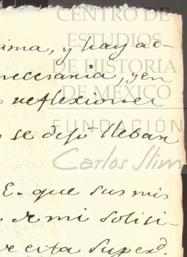 CENTRO DE
ESTUDIOS
DE HISTORIA
DE MÉXICO
FUNDACIÓN
Carlos Slim
ima, y hay ac-
necesaria, y en
reflexiones
se dejó lleban
E. que sus mis
a mi solisi-
recita Superd.